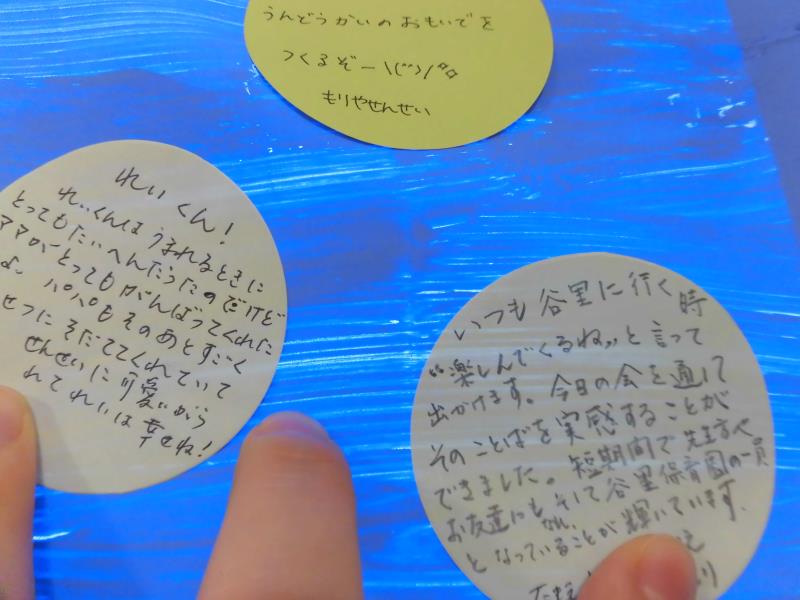 うんどうかいのおもいでを
つくるぞー\(^^)/
もりやせんせい
れいくん!
れいくんはうまれるときに
とってもたいへんだったのだけど
ママがとってもがんばってくれた
よ。パパもそのあとすごく
せつにそだててくれていて
せんせいに可愛がら
れてれいは幸せね!
いつも谷里に行く時
“楽しんでくるね”と言って
出かけます。今日の会を通して
そのことばを実感することが
できました。短期間で先生方や
お友達にも、そして谷里保育園の一員
となっていることが輝いています。